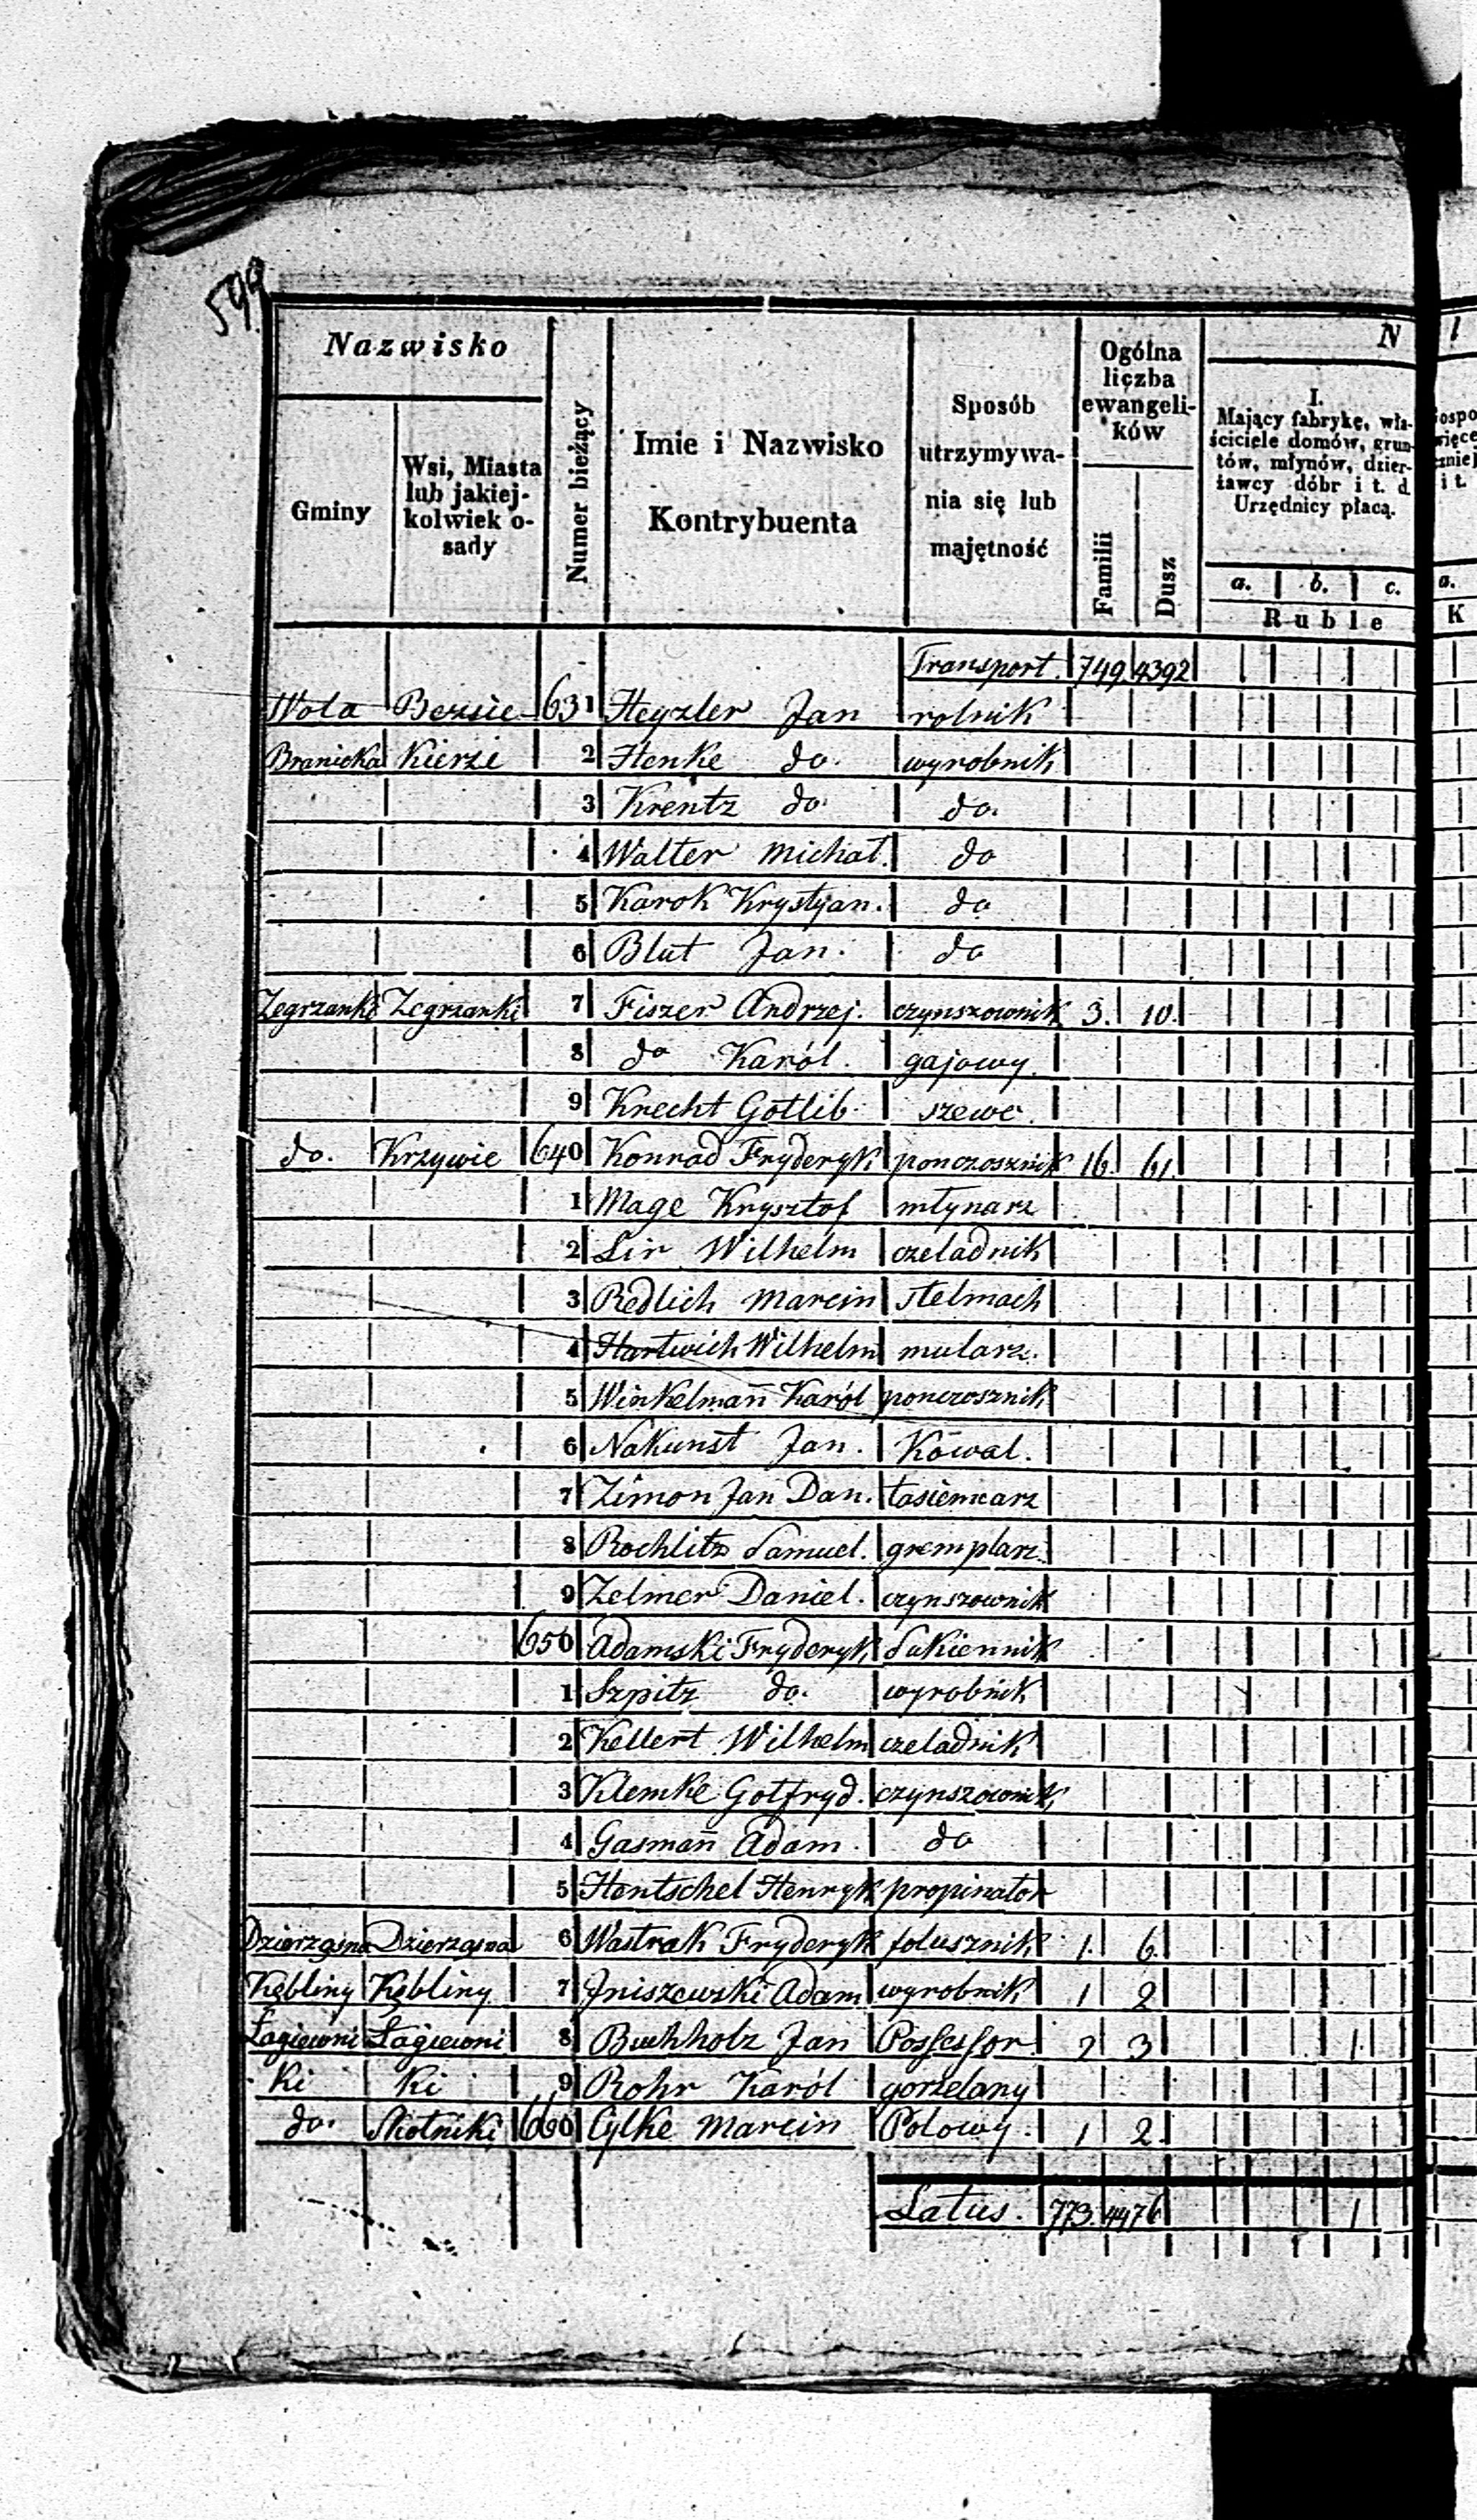 599
Nazwisko
Gminy
Wsi, Miasta
lub jakiej-
kolwiek o-
sady
Numer bieżący
Imie i Nazwisko
Kontrybuenta
Sposób
utrzymywa-
nia się lub
majętność
Ogólna
liczba
ewangeli-
ków
Familii
Dusz
N
I.
Mający fabrykę, wła-
ściciele domów, grun-
tów, młynów, dzier-
żawcy dóbr i t. d
Urzędnicy płacą.
a. b. c.
Ruble
a.
K
Transport. 749 4392
Wola Bezsie- 631 Heyzler Jan rolnik
Branicka Kierzi 2 Henke do. wyrobnik
3 Krentz do. do.
4 Walter Michał. do
5 Karok Krystyan. do
6 Blut Jan. do
Zegrzanki Zegrzanki 7 Fiszer Andrzej. czynszownik 3. 10.
8 do Karól. gajowy.
9 Knecht Gotlib. szewc.
do. Krzywie 640 Konrad Fryderyk ponczosznik 16. 61.
1 Mage Krysztof młynarz
2 Lir Wilhelm czeladnik
3 Redlich Marcin stelmach
4 Hartwich Wilhelm mularz.
5 Winkelmañ Karól ponczosznik
6 Nakunst Jan. Kowal.
7 Zimon Jan Dan. tasiemkarz
8 Rochlitz Samuel. gremplarz.
9 Zelmer Daniel. czynszownik
650 Adamski Fryderyk Sukiennik
1 Szpitz do. wyrobnik
2 Kellert Wilhelm czeladnik
3 Klemke Gotfryd. czynszownik
4 Gasmañ Adam. do
5 Hentschel Henryk propinator
Dzierzgsna Dzierzgsna 6 Wastrak Fryderyk folusznik 1. 6.
Kębliny Kębliny 7 Jniszewski Adam wyrobnik 1 2
Łagiewni Łagiewni 8 Buchholz Jan Possessor 2 3 1.
ki ki 9 Rohr Karól gorzelany
do. Skotniki 660 Cylke Marcin Polowy. 1 2.
Latus. 773. 4476 1